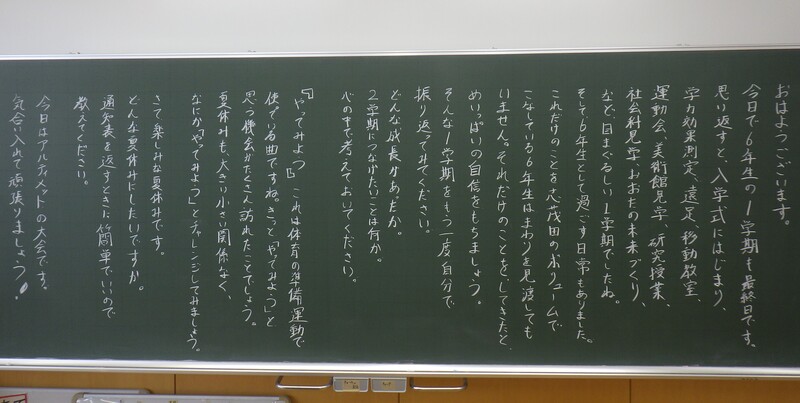 おはようございます。
今日で6年生の1学期も最終日です。
思い返すと、入学式にはじまり、
学力効果測定、遠足、移動教室、
運動会、美術館見学、研究授業、
社会科見学、おおたの未来づくり、
など、目まぐるしい1学期でしたね。
そして、6年生として過ごす日常もありました。
これだけのことを志茂田のボリュームで
こなしている6年生はまわりを見渡しても
いません。それだけのことをしてきたと、
めいっぱいの自信をもちましょう。
そんな1学期をもう一度自分で
振り返ってみてください。
どんな成長があったか。
2学期につなげたいことは何か。
心の中で考えておいてください。
『やってみよう』これは体育の準備運動で
使っている曲ですね。きっと「やってみよう」と
思う機会がたくさん訪れたことでしょう。
夏休みも、大きい小さい関係なく、
なにか「やってみよう」とチャレンジしてみましょう。
さて、楽しみな夏休みです。
どんな夏休みにしたいですか。
通知表を返すときに簡単でいいので
教えてください。
今日はアルティメットの大会です。
気合い入れて頑張りましょう!